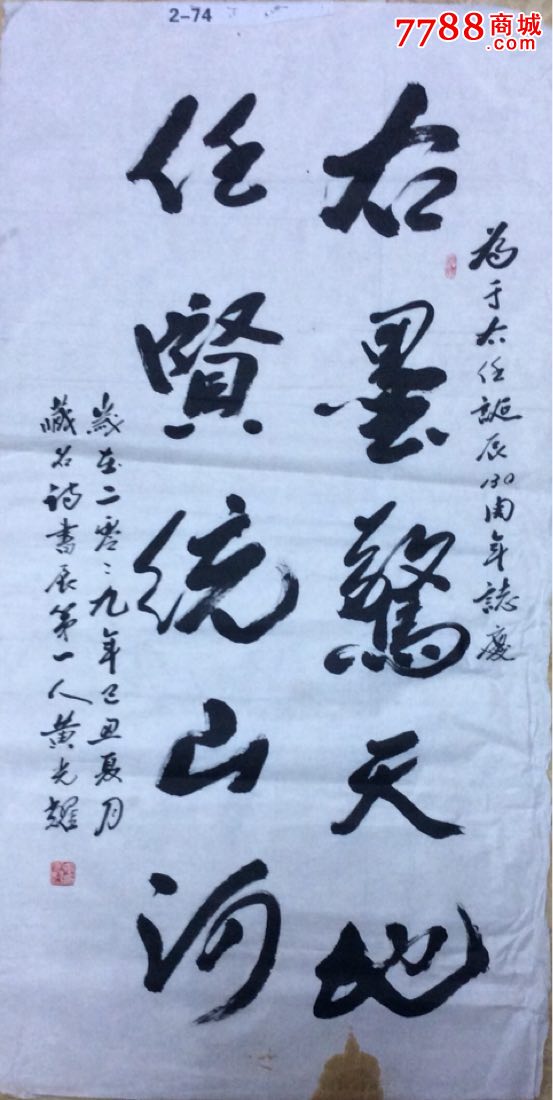 2-74
7788商城
.com
为于右任誕辰130周年誌慶
右墨驚天地
任賢統山河
歲在二零零九年己丑夏月
藏名詩書展第一人黄光耀